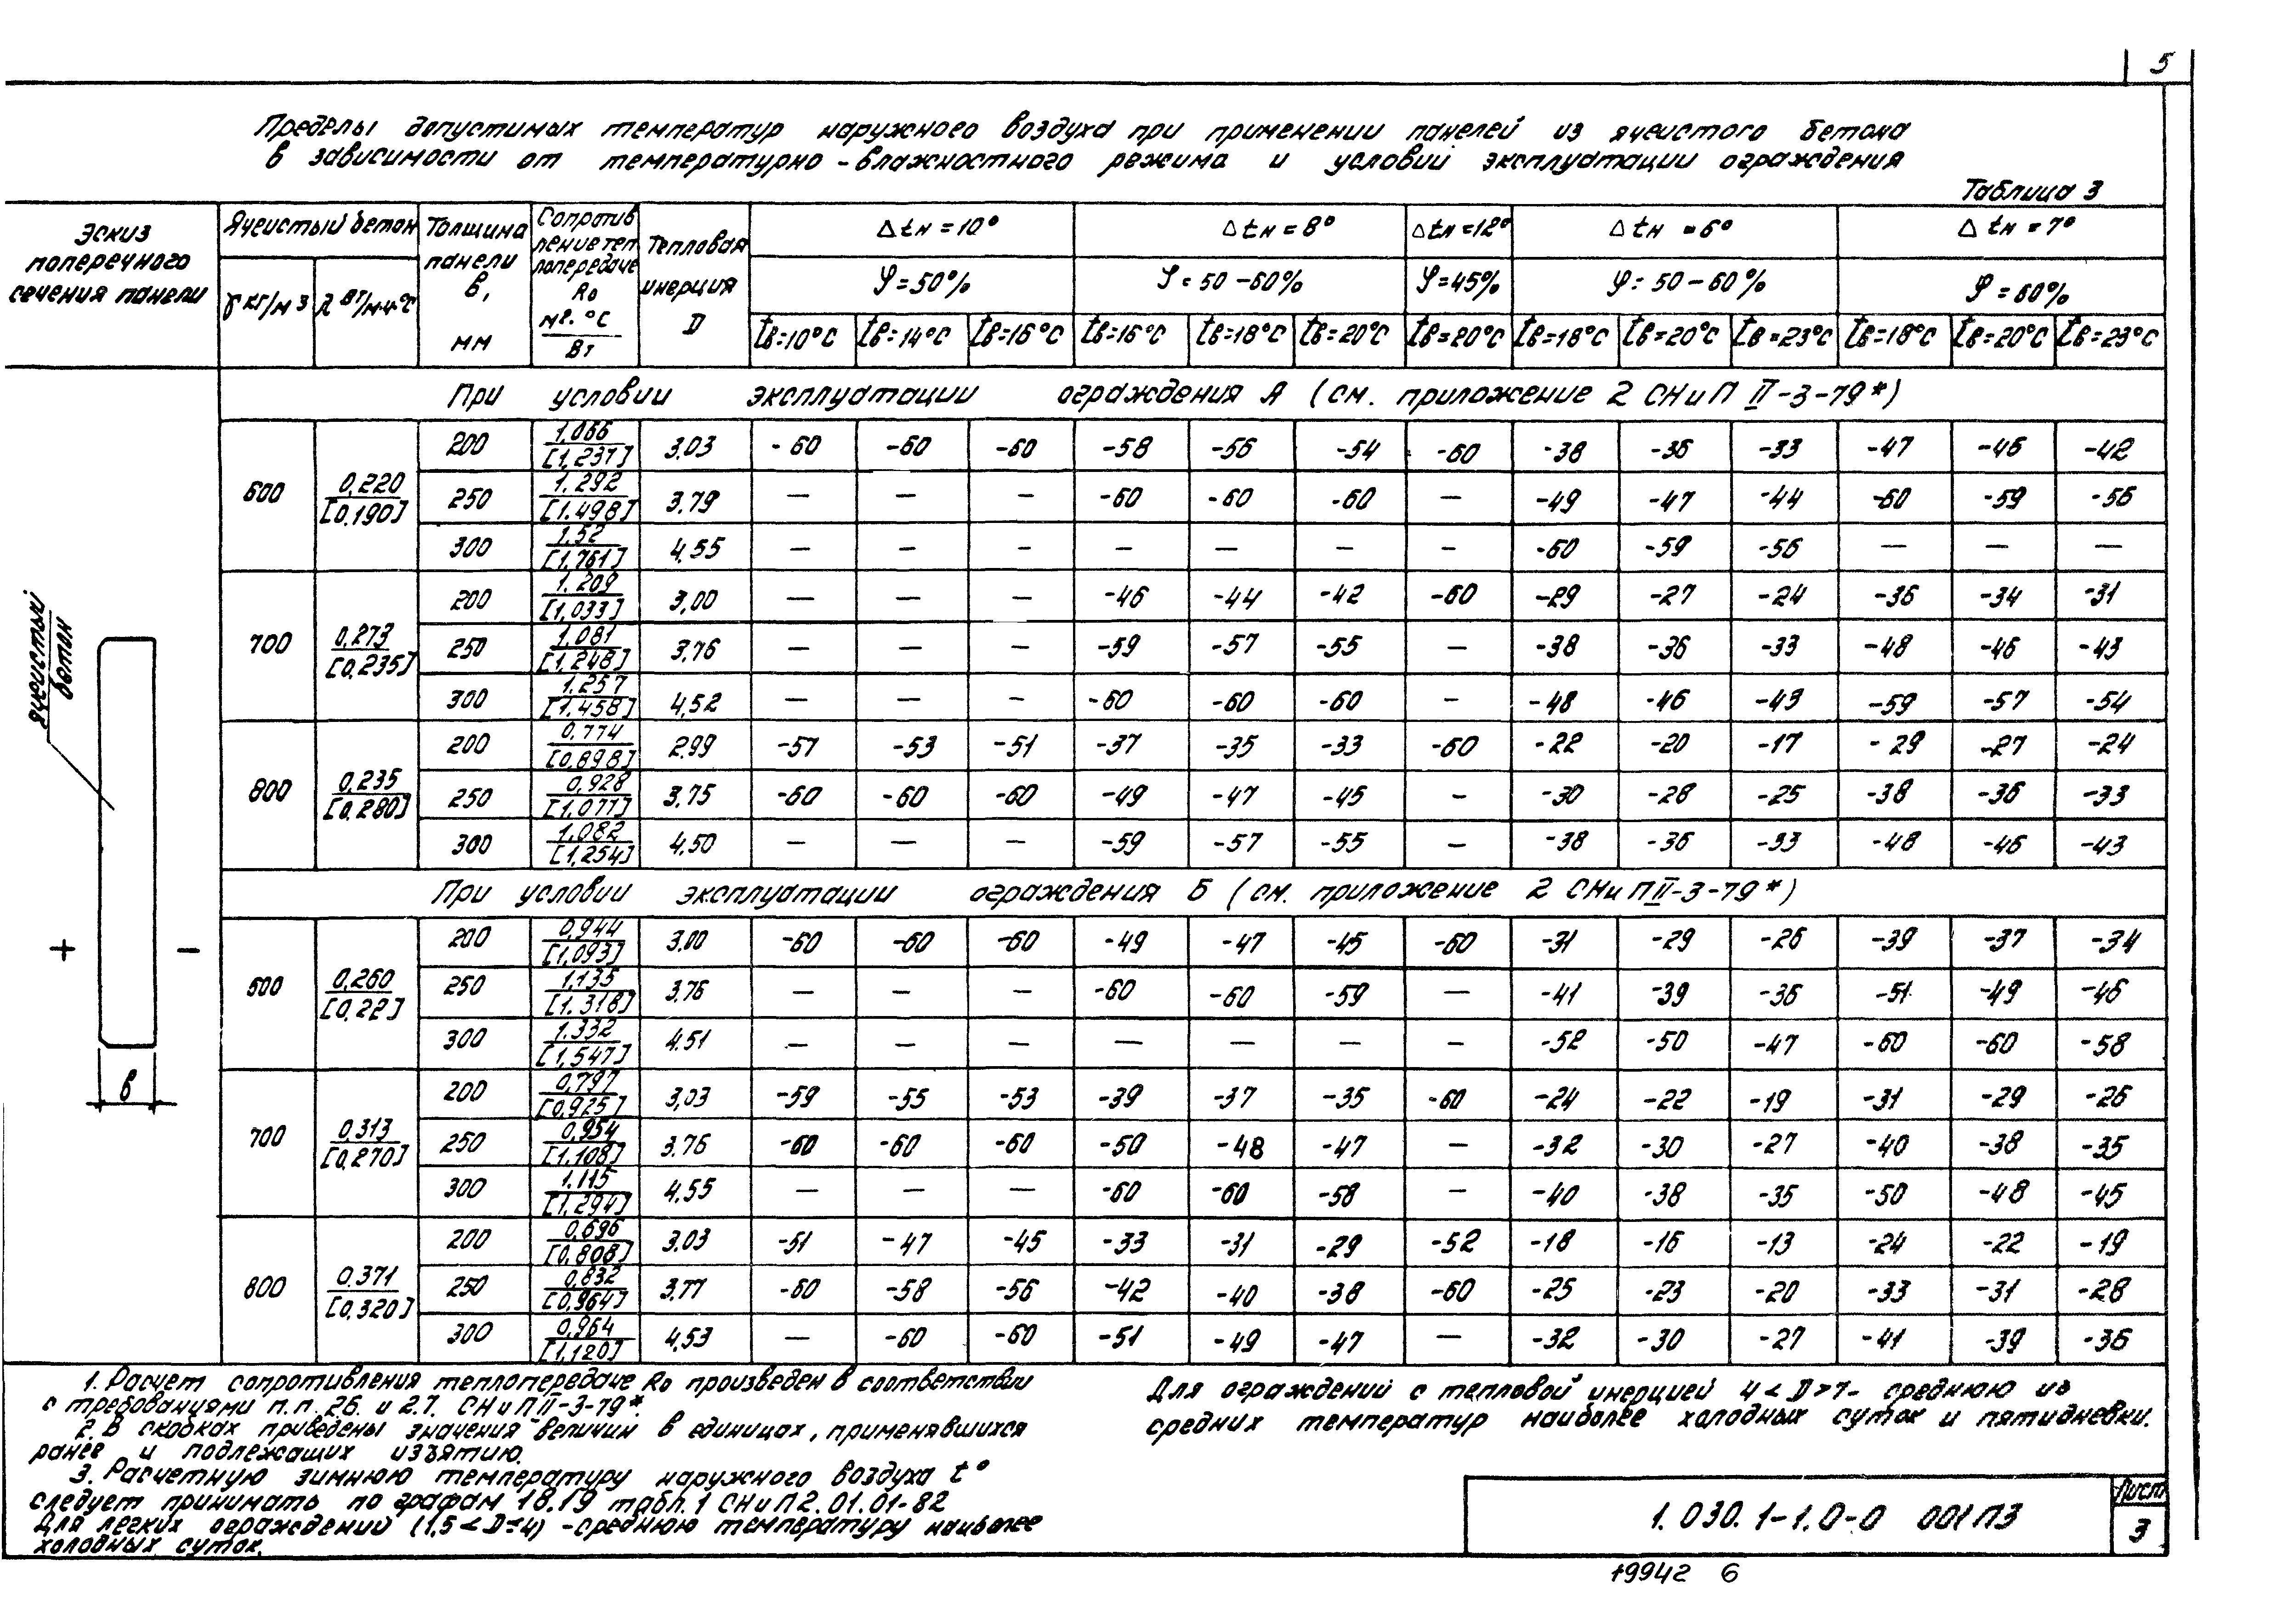 5
Пределы допустимых температур наружного воздуха при применении панелей из ячеистого бетона
в зависимости от температурно-влажностного режима и условий эксплуатации ограждения
Таблица 3
Эскиз поперечного сечения панели
Ячеистый бетон
γ кг/м3
λ Вт/м·ч·°С
Толщина панели в, мм
Сопротивление теплопередаче Ro м2·°С/Вт
Тепловая инерция D
Δtн=10° Δtн=8° Δtн=12° Δtн=6° Δtн=7°
φ=50% φ=50-60% φ=45% φ=50-60% φ=60%
tв=10°С tв=14°С tв=16°С tв=16°С tв=18°С tв=20°С tв=20°С tв=18°С tв=20°С tв=23°С tв=18°С tв=20°С tв=23°С
При условии эксплуатации ограждения А (см. приложение 2 СНиП II-3-79*)
600 0,220 [0,190]
200 1,066 [1,237] 3,03 -60 -60 -60 -58 -56 -54 -60 -38 -36 -33 -47 -45 -42
250 1.292 [1.498] 3,79 — — — -60 -60 -60 — -49 -47 -44 -60 -59 -56
300 1.52 [1,761] 4,55 — — — — — — — -60 -59 -56 — — —
700 0,273 [0,235]
200 1.209 [1,033] 3,00 — — — -46 -44 -42 -60 -29 -27 -24 -36 -34 -31
250 1,081 [1,248] 3,76 — — — -59 -57 -55 — -38 -36 -33 -48 -46 -43
300 1.257 [1.458] 4,52 — — — -60 -60 -60 — -48 -46 -43 -59 -57 -54
800 0,235 [0,280]
200 0,774 [0,898] 2.99 -57 -53 -51 -37 -35 -33 -60 -22 -20 -17 -29 -27 -24
250 0,928 [1,077] 3,75 -60 -60 -60 -49 -47 -45 — -30 -28 -25 -38 -36 -33
300 1.082 [1,254] 4,50 — — — -59 -57 -55 — -38 -36 -33 -48 -46 -43
При условии эксплуатации ограждения Б (см. приложение 2 СНиП II-3-79*)
600 0,260 [0,22]
200 0,944 [1,093] 3.00 -60 -60 -60 -49 -47 -45 -60 -31 -29 -26 -39 -37 -34
250 1,135 [1.318] 3,76 — — — -60 -60 -59 — -41 -39 -36 -51 -49 -46
300 1.332 [1,547] 4.51 — — — — — — — -52 -50 -47 -60 -60 -58
700 0,313 [0,270]
200 0,797 [0,925] 3,03 -59 -55 -53 -39 -37 -35 -60 -24 -22 -19 -31 -29 -26
250 0,954 [1,108] 3.76 -60 -60 -60 -50 -48 -47 — -32 -30 -27 -40 -38 -35
300 1.115 [1,294] 4,55 — — — -60 -60 -58 — -40 -38 -35 -50 -48 -45
800 0.371 [0,320]
200 0,696 [0,808] 3.03 -51 -47 -45 -33 -31 -29 -52 -18 -16 -13 -24 -22 -19
250 0,832 [0,964] 3,77 -60 -58 -56 -42 -40 -38 -60 -25 -23 -20 -33 -31 -28
300 0,964 [1,120] 4,53 — -60 -60 -51 -49 -47 — -32 -30 -27 -41 -39 -36
ячеистый
бетон
+ −
в
1. Расчет сопротивления теплопередаче Ro произведен в соответствии
с требованиями п.п. 2б. и 2.7. СНиП II-3-79*.
2. В скобках приведены значения величин в единицах, применявшихся
ранее и подлежащих изъятию.
3. Расчетную зимнюю температуру наружного воздуха t°
следует принимать по графам 18.19 табл. 1 СНиП 2.01.01-82
Для легких ограждений (1,5<D≤4) -среднюю температуру наиболее
холодных суток.
Для ограждений с тепловой инерцией 4<D>7- среднюю из
средних температур наиболее холодных суток и пятидневки.
1.030.1-1.0-0 001ПЗ
Лист
3
19942 6